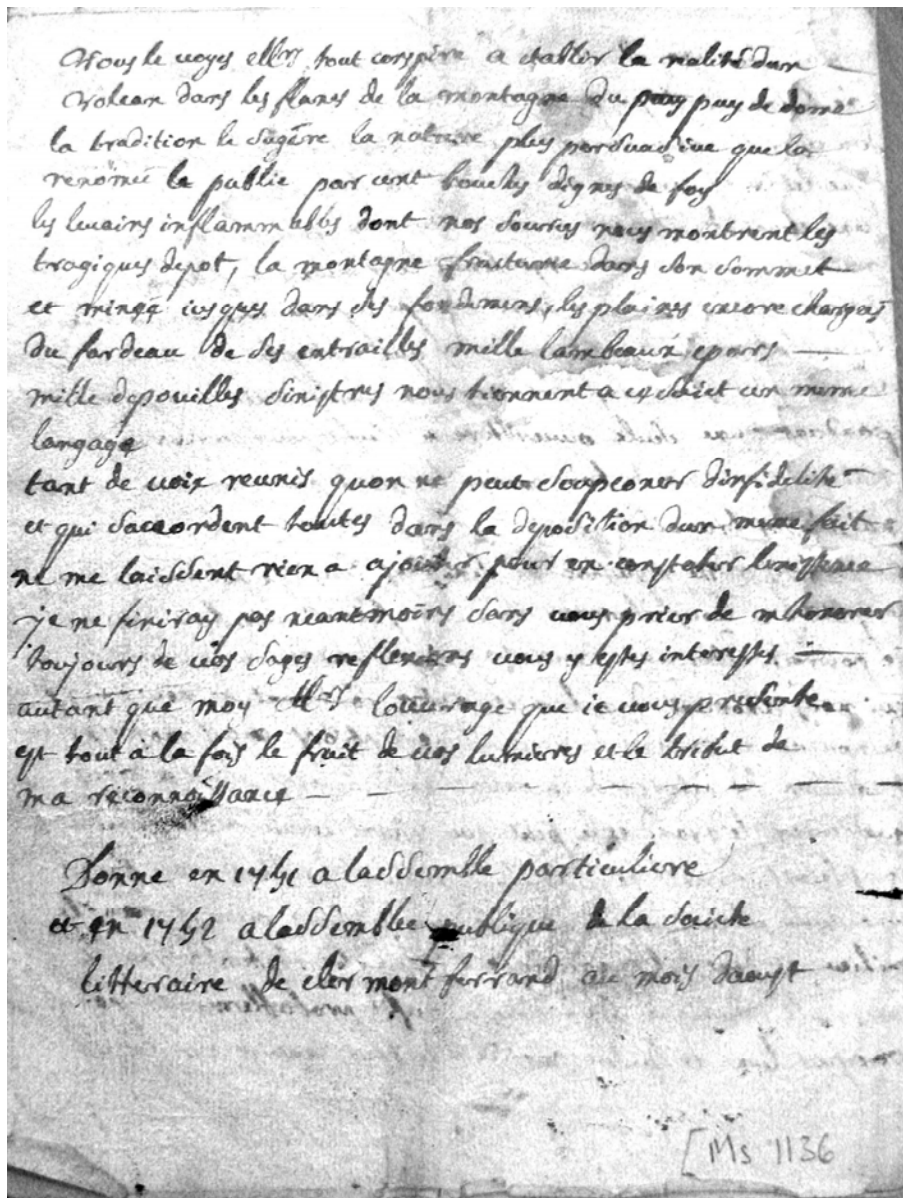 Vous le voyes Mrs tout conspire a etablir la realité dun
Volcan dans les flancs de la montagne du puy de dome
la tradition le sugère la nature plus persuasive que la
renomée le publie par cent bouches dignes de foy
les inflammables dont nos sources nous montrent les
tragiques depot, la montagne dans son sommet
et minée iusques dans ses fondemens, les plaines encore chargées
du fardeau de ses entrailles mille lambeaux epars
mille depouilles sinistres nous tiennent a ce suiet un meme
langage
tant de voix reunis quon ne peut soupconer dinfidelité
et qui saccordent toutes dans la deposition dun meme fait
ne me laissent rien a ajouter pour en constater lexistence
je ne finiray pas neantmoins sans vous prier de mhonorer
toujours de vos sages reflexions vous y estes interesses
autant que moy Mrs louvrage que ie vous presente
est tout à la fois le fruit de vos lumieres et le tribut de
ma reconnoissance
Donne en 1751 a lassemble particuliere
et en 1752 a lassemblee publique de la sociéte
litteraire de clermont ferrand au mois daoust
[Ms 1136